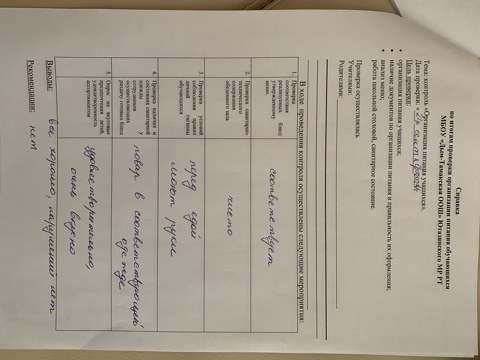 Справка
по итогам проверки организации питания обучающихся
МБОУ «Льяшевская ООШ» Ютазинского МР РТ
Тема: контроль «Организация питания учащихся».
Дата проверки:
Цель проверки:
организация питания учащихся;
наличие документов по организации питания и правильность их оформления;
анализ меню;
работа школьной столовой, санитарное состояние.
Проверка осуществлялась
Учителями:
Родителями:
В ходе проведения контроля осуществлены следующие мероприятия:
1. Проверка соответствия реализуемых блюд утвержденному меню.
соответствует
2. Проверка санитарно-технического содержания обеденного зала
чисто
3. Проверка условий соблюдения правил личной гигиены обучающихся
перед едой
моют руки
4. Проверка наличия и состояния санитарной одежды у сотрудников осуществляющих раздачу готовых блюд
повар в соответствующей
одежде
5. Опрос на вкусовые предпочтения детей, удовлетворенность ассортиментом
удовлетворительно,
очень вкусно
Выводы: все хорошо, нарушений нет
Рекомендации: нет